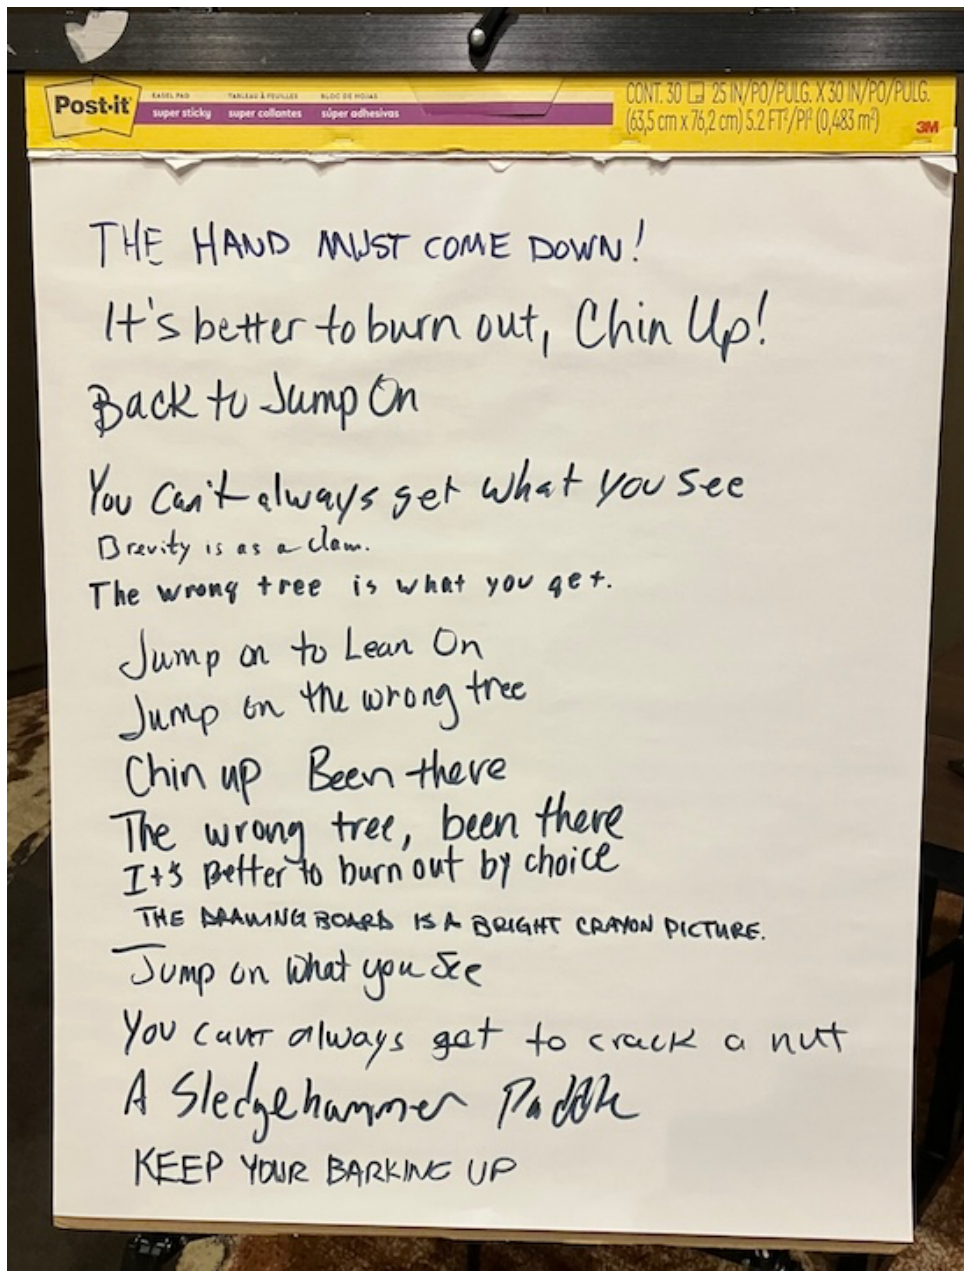 Post-it
EASEL PAD TABLEAU À FEUILLES BLOC DE HOJAS
super sticky super collantes súper adhesivas
CONT. 30 25 IN/PO/PULG. X 30 IN/PO/PULG.
(63,5 cm x 76,2 cm) 5.2 FT²/PI² (0,483 m²)
3M
THE HAND MUST COME DOWN!
It's better to burn out, Chin Up!
Back to Jump On
You Can't always get what you see
Brevity is as a clam.
The wrong tree is what you get.
Jump on to Lean On
Jump on the wrong tree
Chin up Been there
The wrong tree, been there
It's Better to burn out by choice
THE DRAWING BOARD IS A BRIGHT CRAYON PICTURE.
Jump on what you See
You can't always get to crack a nut
A Sledgehammer Paddle
KEEP YOUR BARKING UP